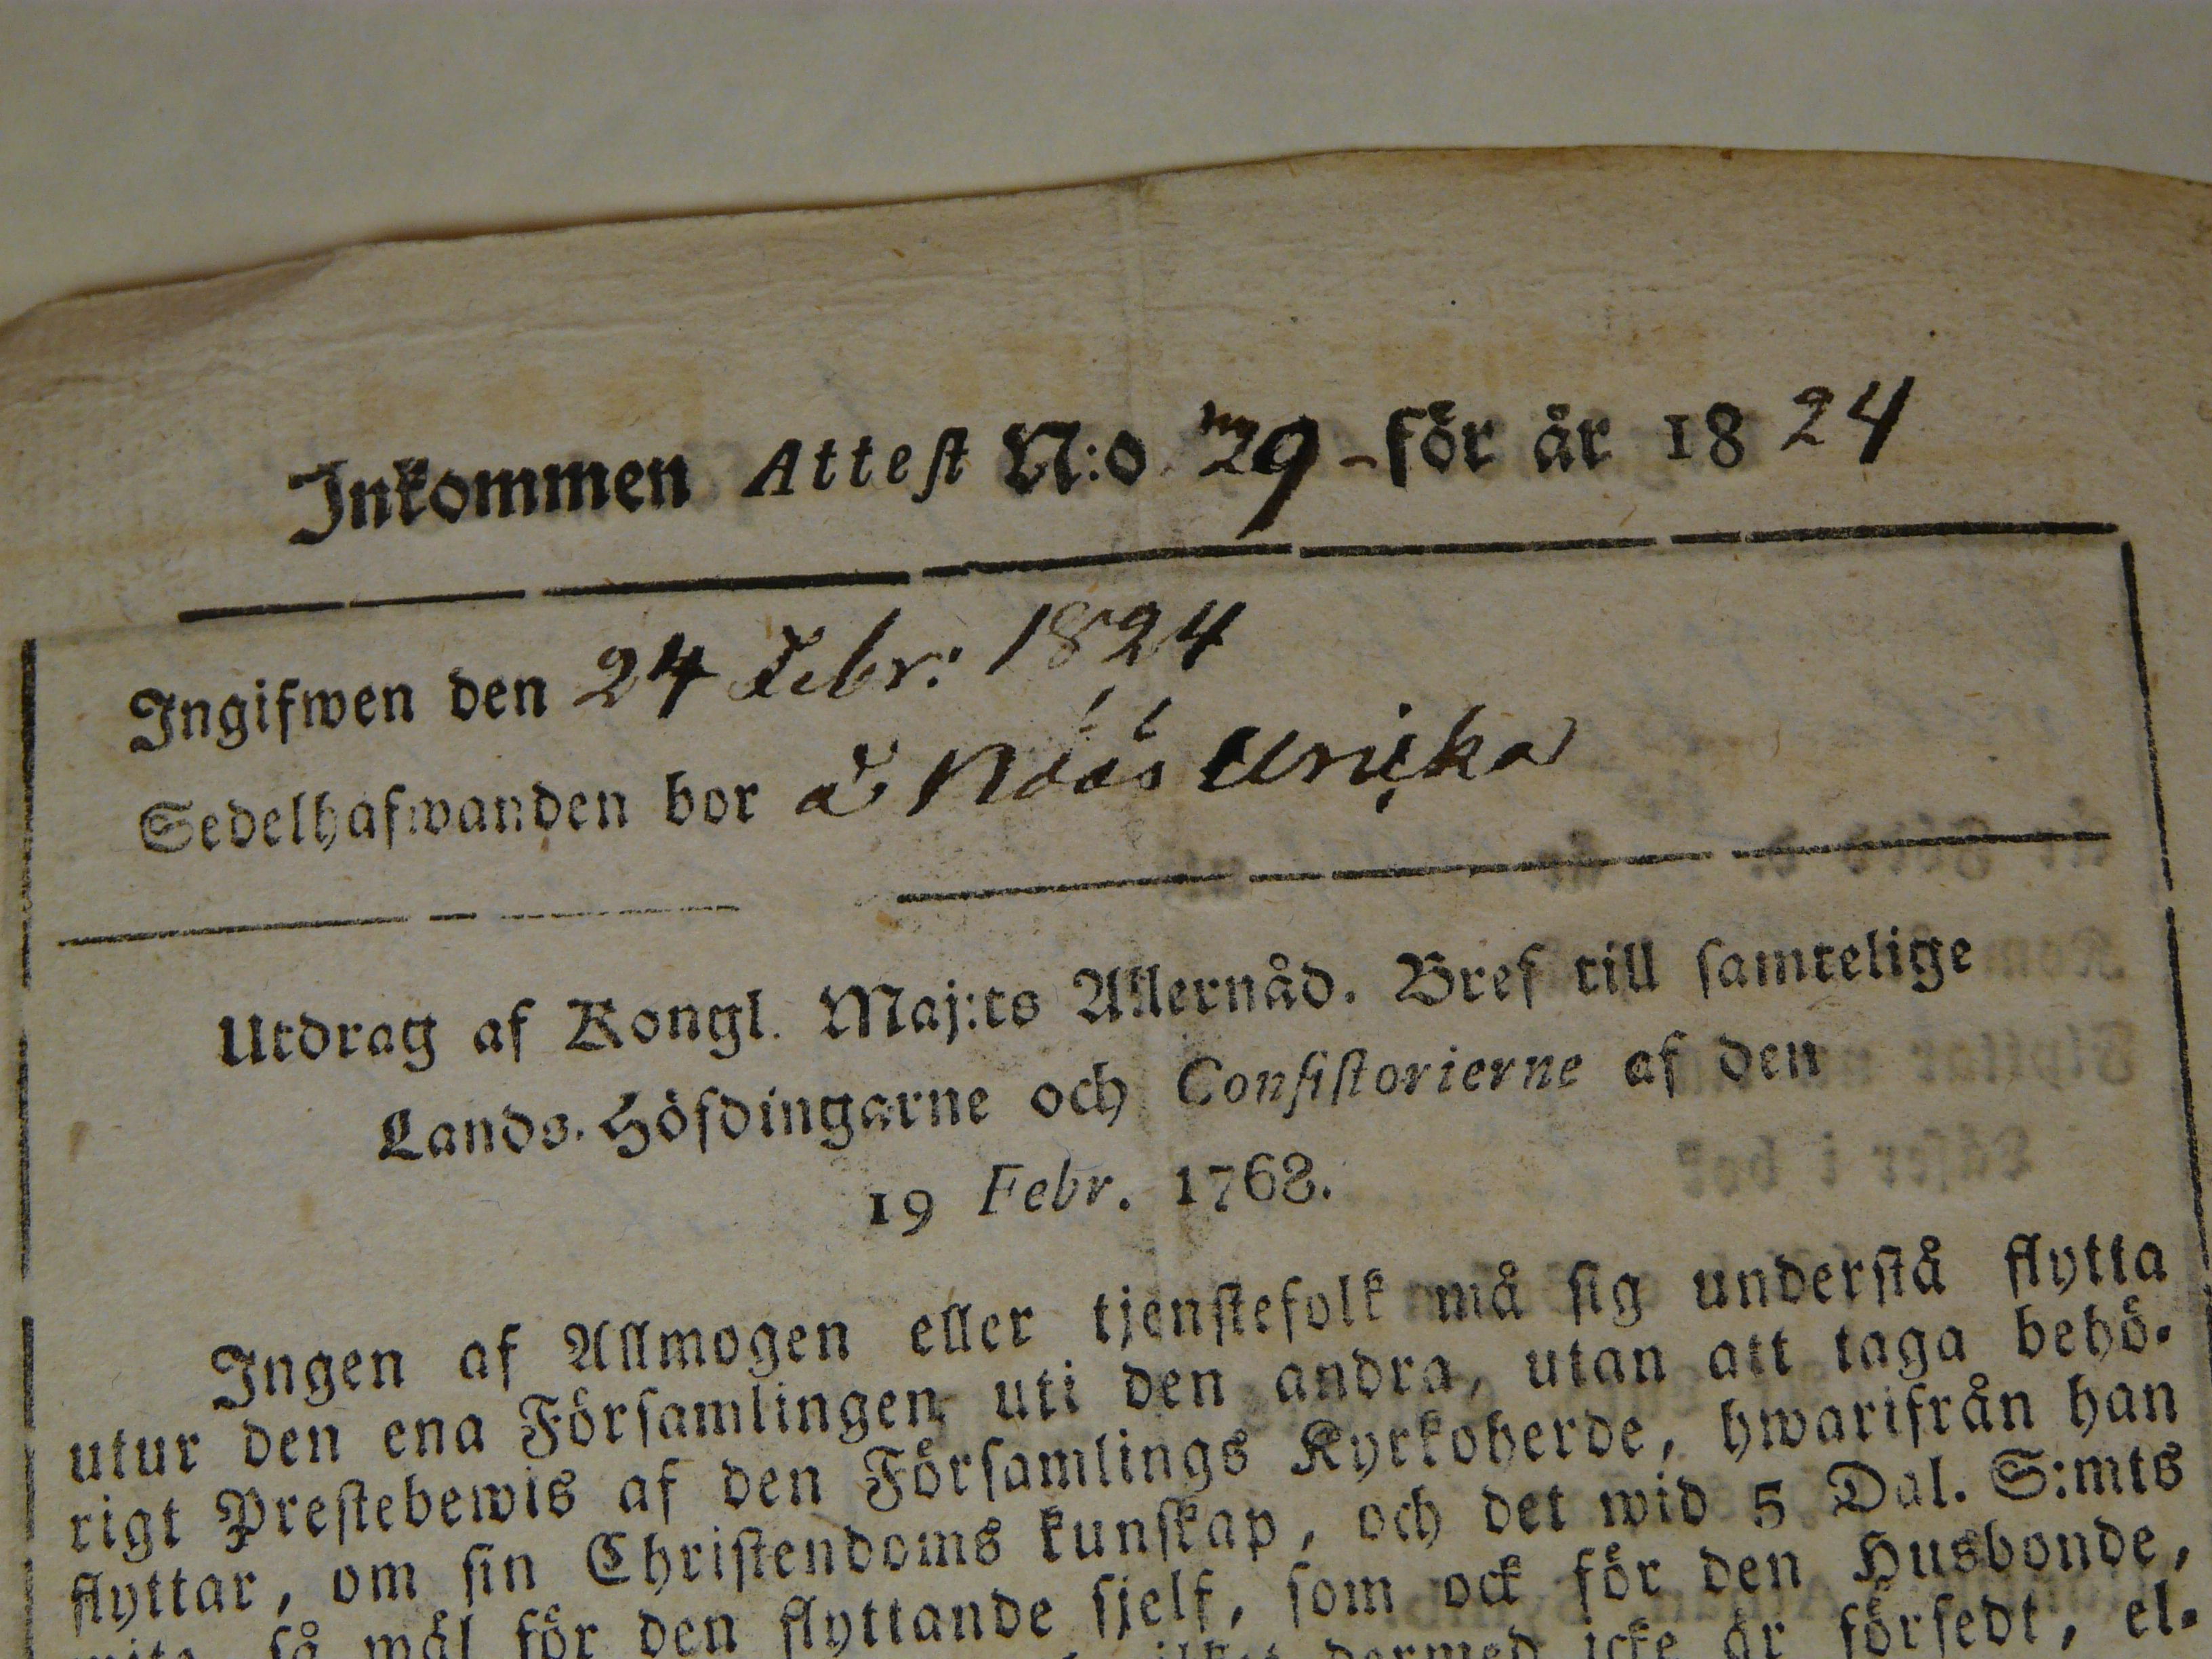 Inkommen Attest N:o 29 - för år 1824
Ingifwen den 24 Febr: 1824
Sedelhafwanden bor å
Utdrag af Kongl. Maj:ts Allernåd. Bref till samtelige
Lands-Höfdingarne och Consistorierne af den
19 Febr. 1768.
Ingen af Allmogen eller tjenstefolk må sig understå flytta
utur den ena Församlingen uti den andra, utan att taga behö-
rigt Prestebewis af den Församlings Kyrkoherde, hwarifrån han
flyttar, om sin Christendoms kunskap, och det wid 5 Dal. S:mts
wite, så wäl för den flyttande sjelf, som ock för den Husbonde,
dermed icke är försedt, el-